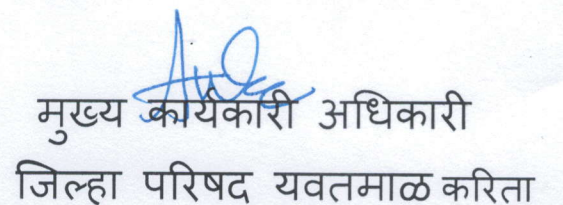 मुख्य कार्यकारी अधिकारी
जिल्हा परिषद यवतमाळ करिता